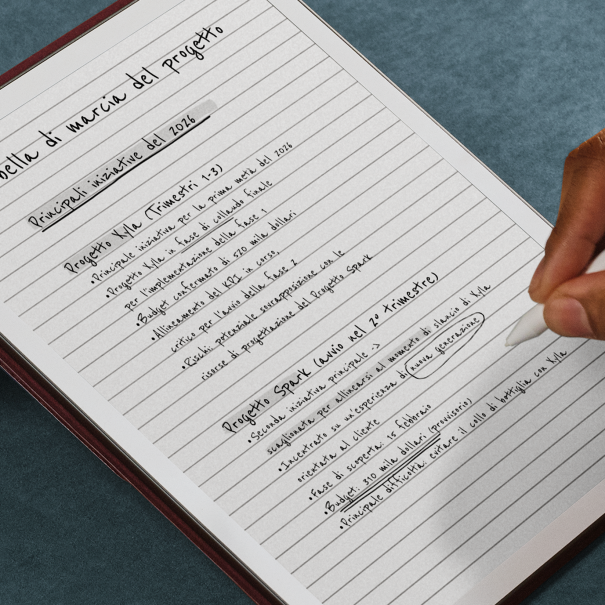 bella di marcia del progetto
Principali iniziative del 2026
Progetto Kyla (Trimestri 1-3)
•Principale iniziativa per la prima metà del 2026
•Progetto Kyla in fase di collaudo finale
per l'implementazione della fase 1
•Budget confermato di 520 mila dollari
•Allineamento dei KPI in corso,
critico per l'avvio della Fase 2
•Rischi: potenziale sovrapposizione con le
risorse di progettazione del Progetto Spark
Progetto Spark (avvio nel 2º trimestre)
•Seconda iniziativa principale ->
scaglionata per allinearsi al momento di slancio di Kyla
•Incentrato su un'esperienza di nuova generazione
orientata al cliente
•Fase di scoperta: 15 febbraio
•Budget: 310 mila dollari (provvisorio)
•Principale difficoltà: evitare il collo di bottiglia con Kyla